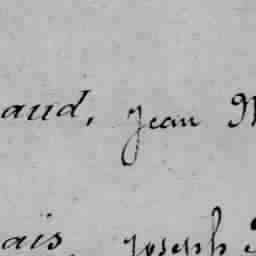 aud, Jean
ais, Joseph